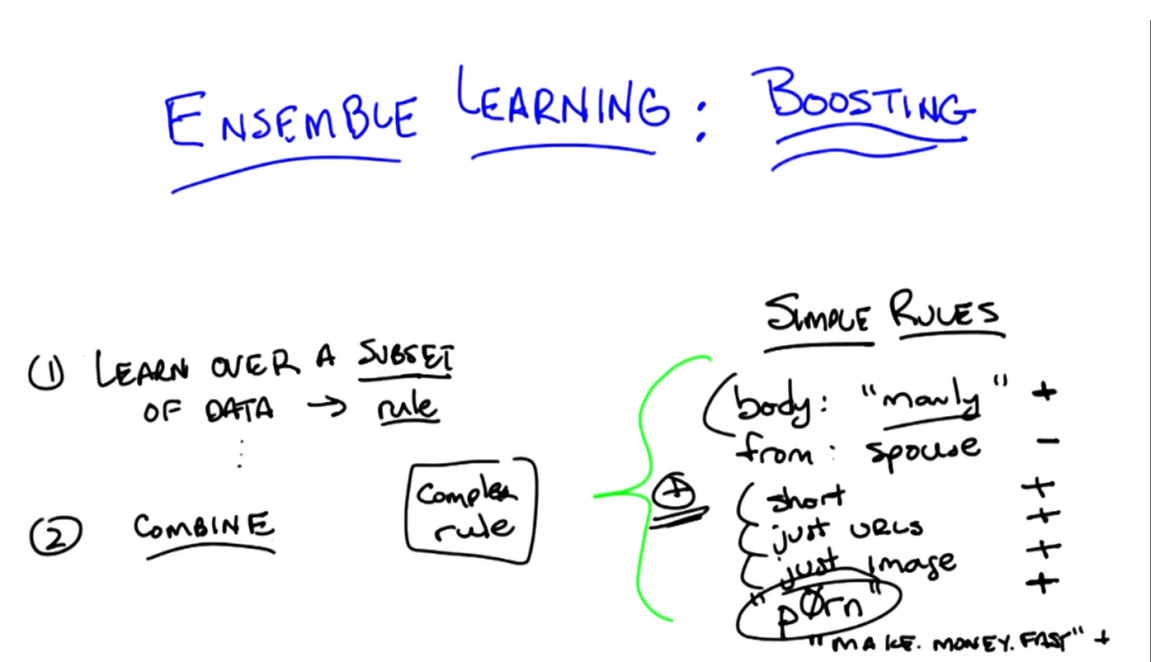 ENSEMBLE LEARNING: BOOSTING
① LEARN OVER A SUBSET
OF DATA → rule
② COMBINE
Complex
rule
SIMPLE RULES
body: "manly" +
from: spouse -
short +
just URLS +
just image +
"pØrn" +
"MAKE.MONEY.FAST" +
⊕